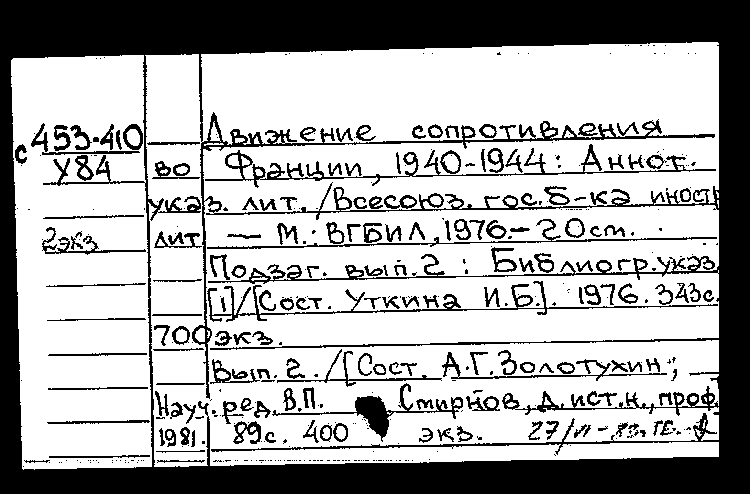 с 453-410 Движение сопротивления
У84 во Франции, 1940-1944: Аннот.
указ. лит. / Всесоюз. гос. б-ка иностр
2экз лит — М.: ВГБИЛ, 1976.- 20см.
Подзаг. вып. 2 : Библиогр. указ.
[1]/[Сост. Уткина И.Б]. 1976. 343с.
700 экз.
Вып. 2. /[Сост. А.Г. Золотухин;
Науч. ред. В.П. Смирнов, д. ист. н., проф.
1981. 89с. 400 экз. 27/VI-83г.